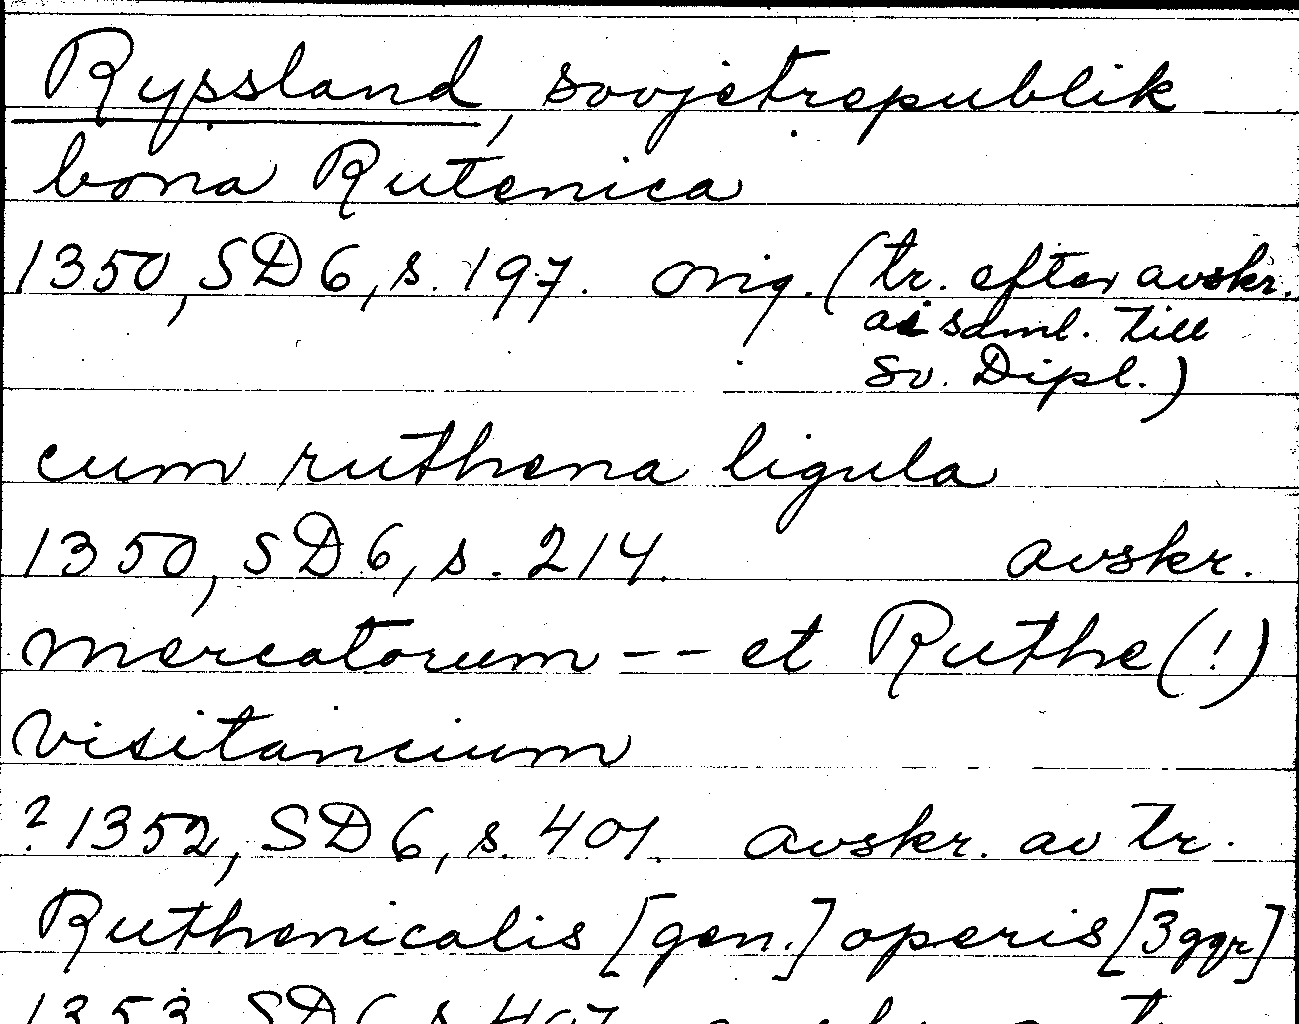 Ryssland, sovjetrepublik
bona Rutenica
1350, SD 6, s. 197. orig. (tr. efter avskr.
i saml. till
Sv. Dipl.)
cum ruthena ligula
1350, SD 6, s. 214. avskr.
mercatorum -- et Ruthe(!)
visitancium
? 1352, SD 6, s. 401. avskr. av tr.
Ruthenicalis [gen.] operis [3 ggr]
1353, SD 6, s. 407.